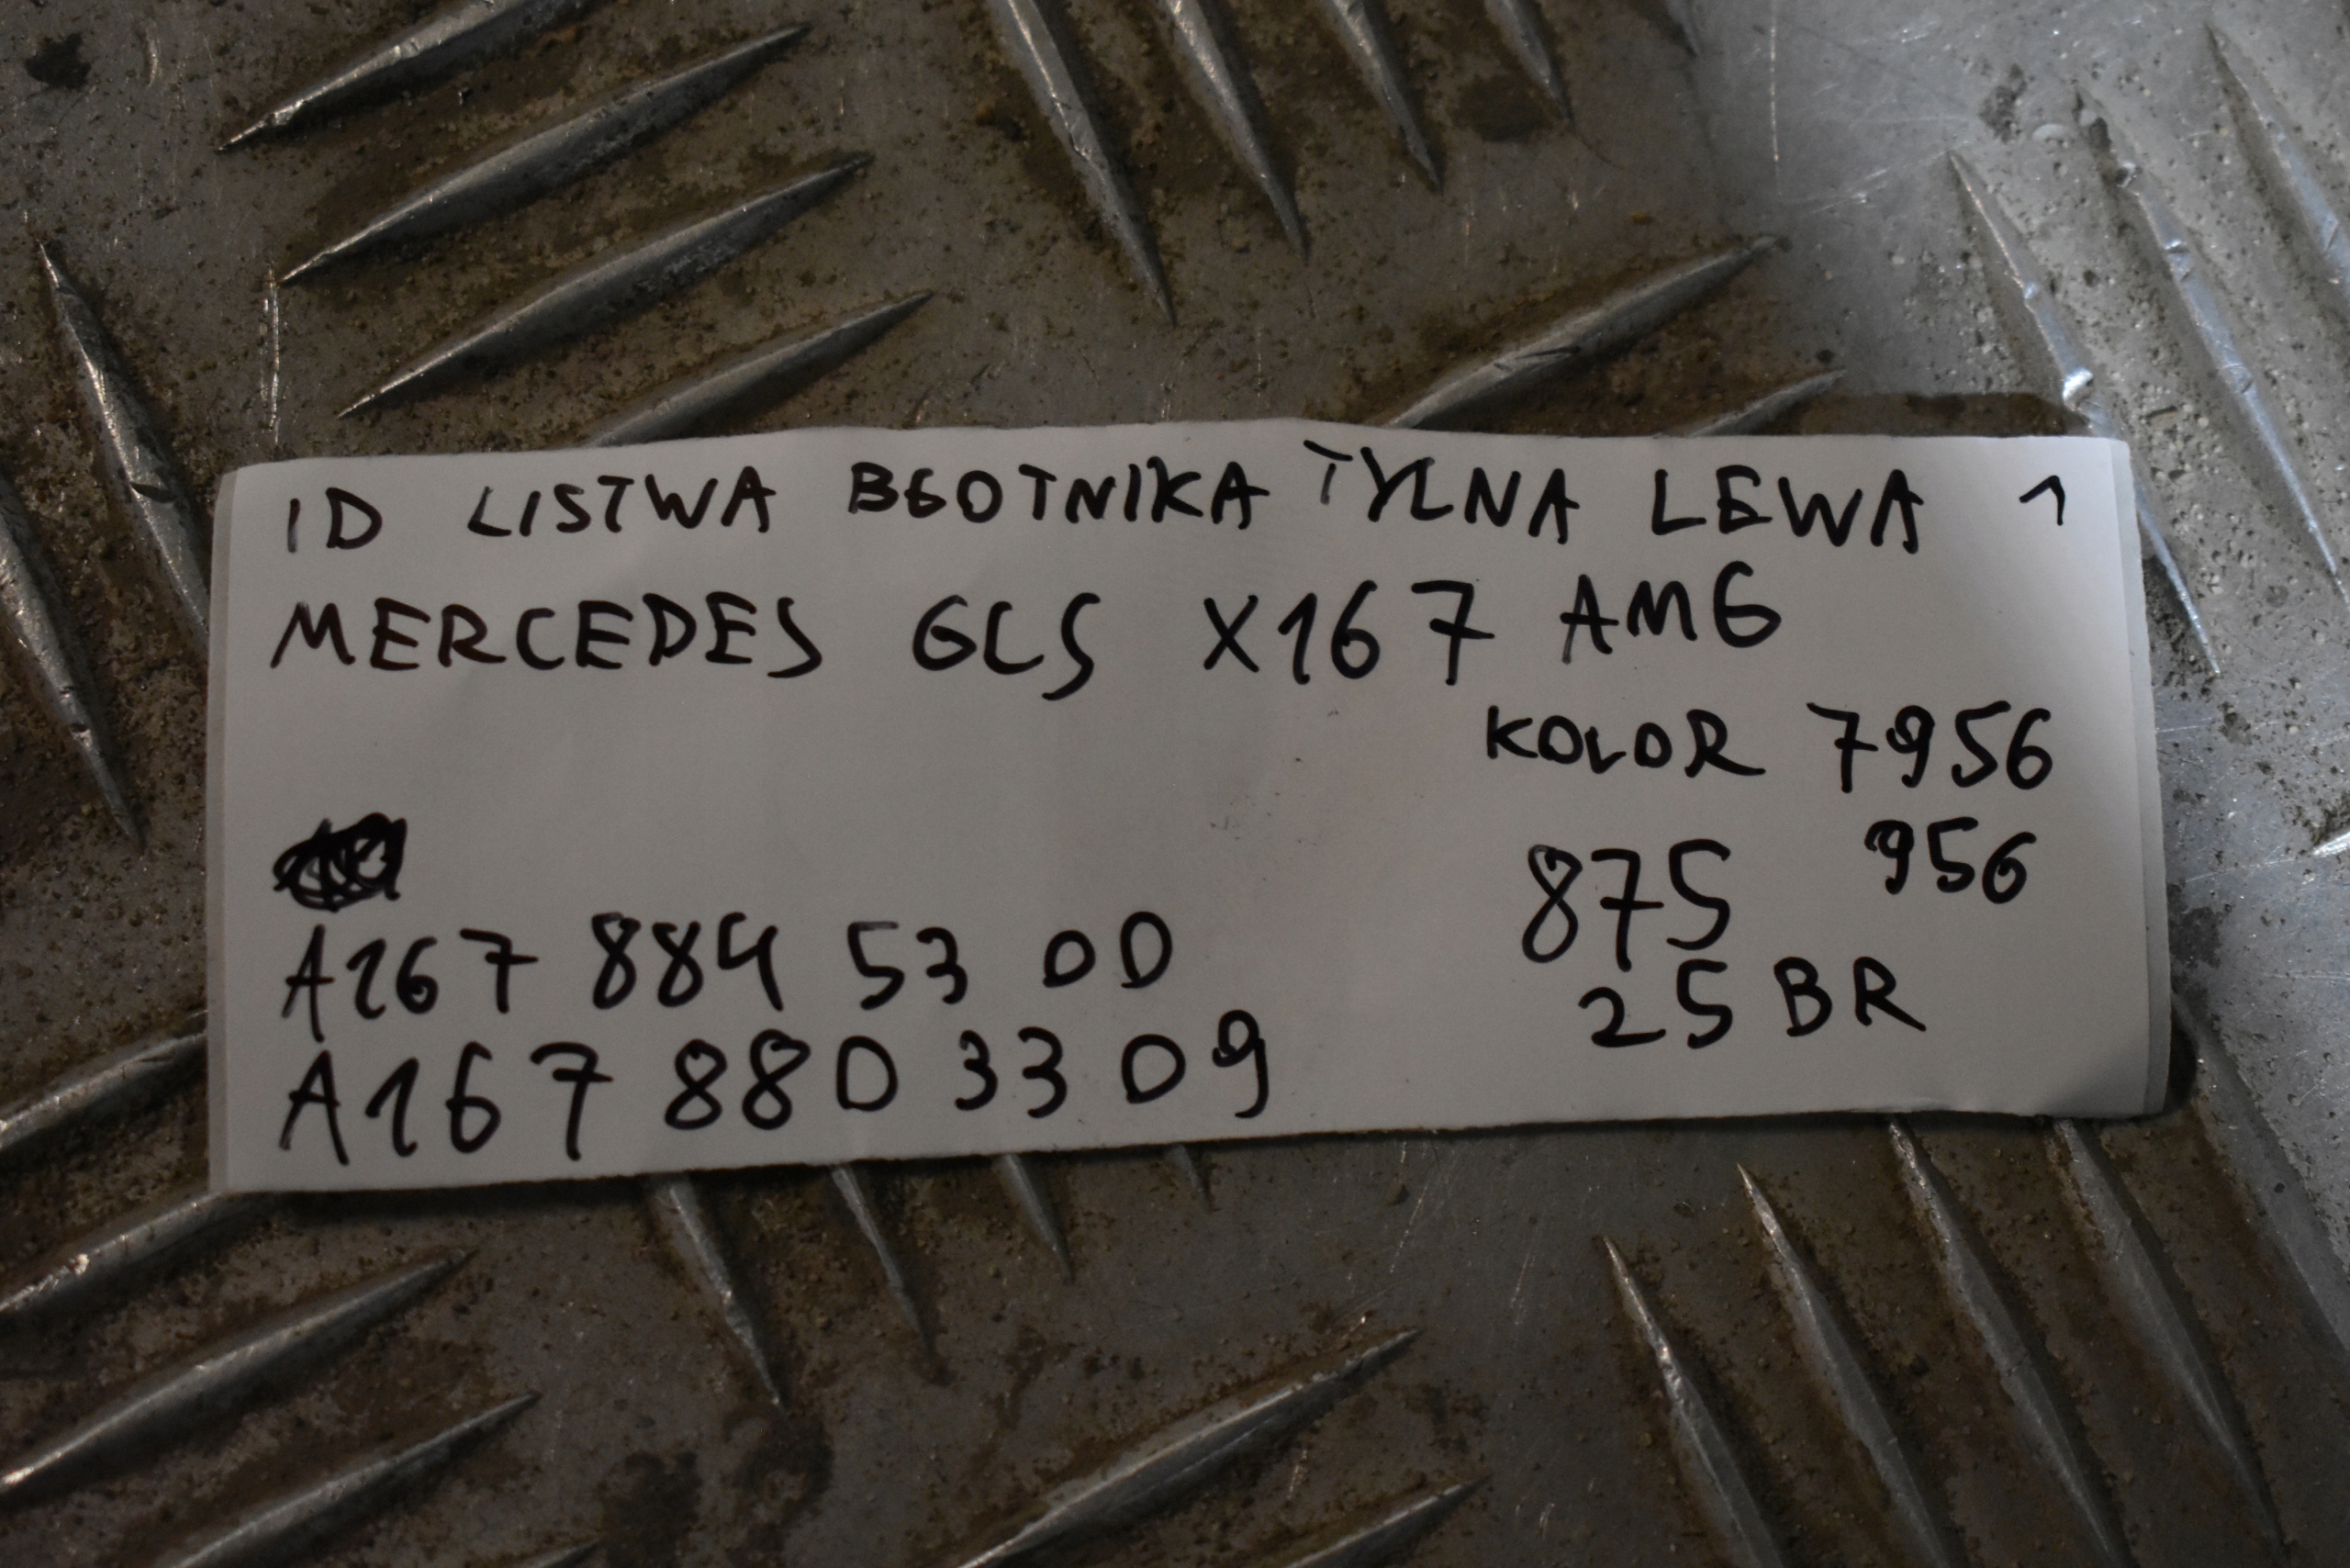 ID LISTWA BŁOTNIKA TYLNA LEWA 1
MERCEDES GLS X167 AMG
KOLOR 7956
956
A167 884 53 00
A167 880 33 09
875
25 BR